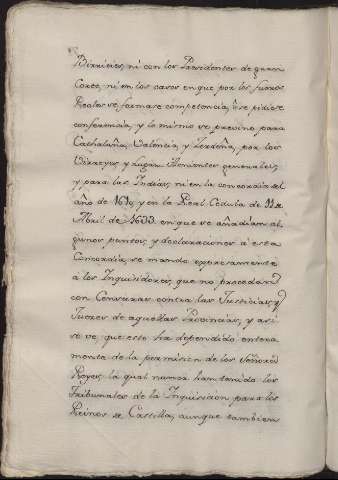 Birreies, ni con los Presidentes de gran
Corte, ni en los casos en que por los fueros
Reales se formase competencia, ò se pidiese
conferencia, y lo mismo se previno para
Cathaluña, Valencia, y Zerdeña, por los
Virreyes y Lugar thenientes generales,
y para las Indias ni en la concordia del
año de 1610, y en la Real Cedula de 11 de
Abril de 1633 en que se añadian al
gunos puntos, y declaraciones a esta
Concordia, se mando expresamente
à los Inquisidores, que no procedan
con Censuras contra las Justicias, y
Jueces de aquellas Provincias, y asi
se ve, que esto ha dependido entera
mente de la permision de los Señores
Reyes la qual nunca han tenido los
Tribunales de la Inquisicion para los
Reinos de Castilla, aunque tambien